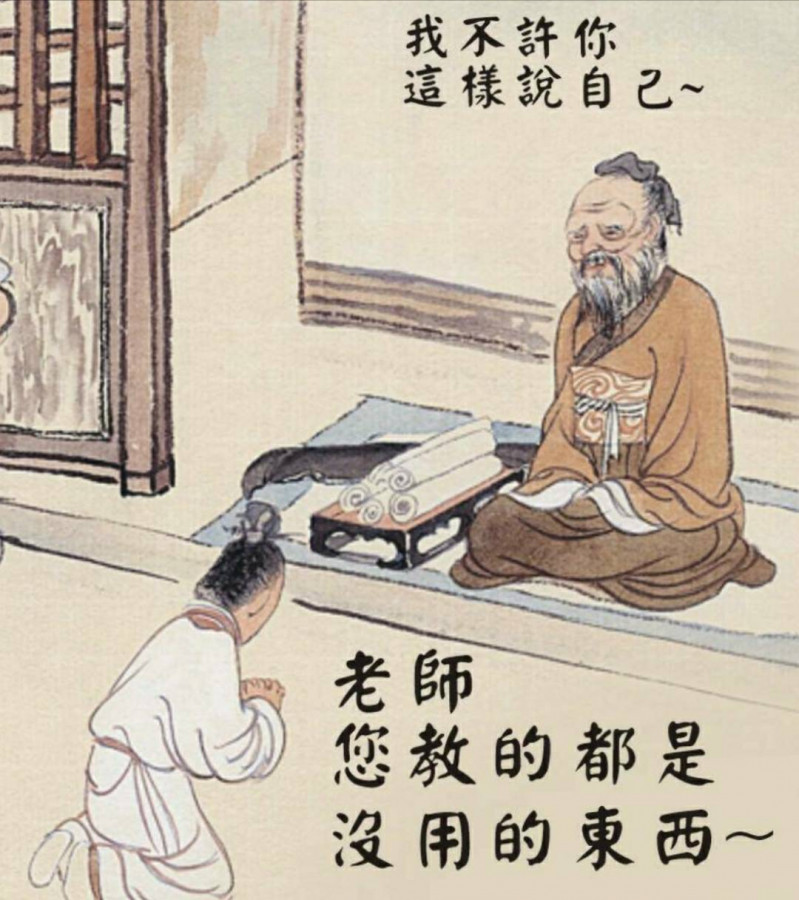 我不許你
這樣說自己~
老師
您教的都是
沒用的東西~